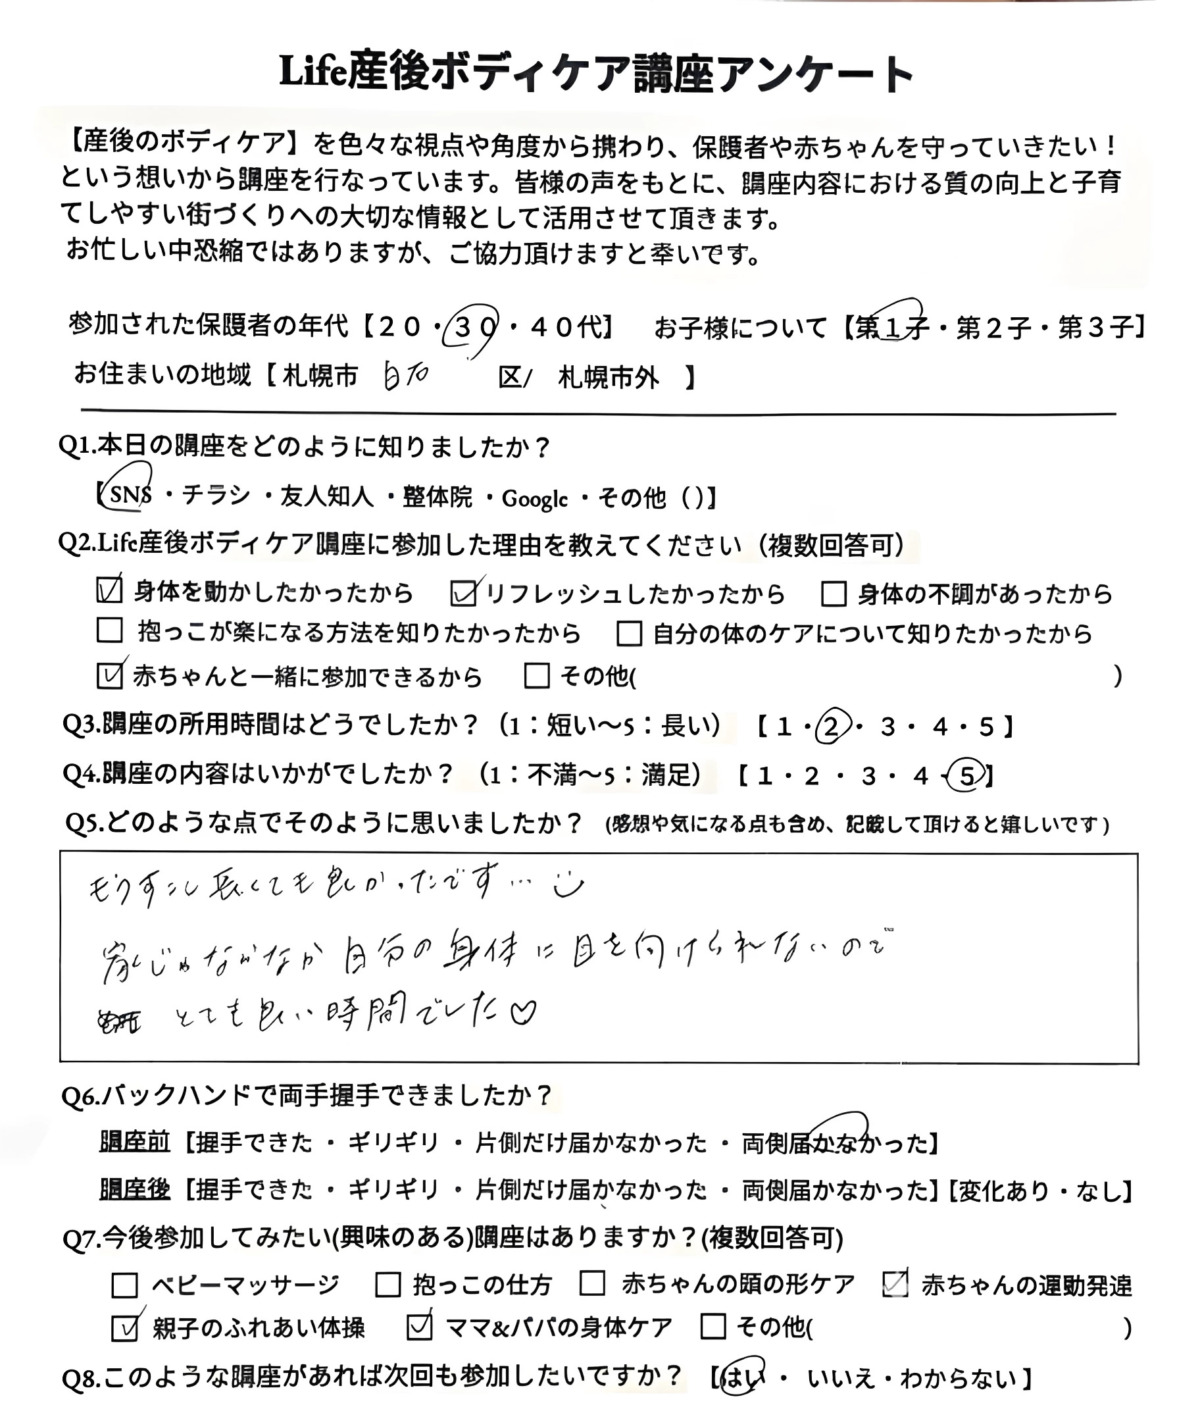 Life産後ボディケア講座アンケート
【産後のボディケア】を色々な視点や角度から携わり、保護者や赤ちゃんを守っていきたい！
という想いから講座を行なっています。皆様の声をもとに、講座内容における質の向上と子育
てしやすい街づくりへの大切な情報として活用させて頂きます。
お忙しい中恐縮ではありますが、ご協力頂けますと幸いです。
参加された保護者の年代【２０・３０・４０代】 お子様について【第１子・第２子・第３子】
お住まいの地域【 札幌市 白石 区/ 札幌市外 】
Q1.本日の講座をどのように知りましたか？
【SNS ・チラシ ・友人知人 ・整体院 ・Google ・その他（ ）】
Q2.Life産後ボディケア講座に参加した理由を教えてください（複数回答可）
☑ 身体を動かしたかったから ☑ リフレッシュしたかったから □ 身体の不調があったから
□ 抱っこが楽になる方法を知りたかったから □ 自分の体のケアについて知りたかったから
☑ 赤ちゃんと一緒に参加できるから □ その他( )
Q3.講座の所用時間はどうでしたか？（1：短い〜5：長い） 【 １・２・３・４・５ 】
Q4.講座の内容はいかがでしたか？（1：不満〜5：満足） 【 １・２・３・４・５】
Q5.どのような点でそのように思いましたか？ (感想や気になる点も含め、記載して頂けると嬉しいです)
もうすこし長くても良かったです…
家じゃなかなか自分の身体に目を向けられないので
とても良い時間でした♡
Q6.バックハンドで両手握手できましたか？
講座前【握手できた ・ ギリギリ ・ 片側だけ届かなかった ・ 両側届かなかった】
講座後【握手できた ・ ギリギリ ・ 片側だけ届かなかった ・ 両側届かなかった】【変化あり・なし】
Q7.今後参加してみたい(興味のある)講座はありますか？(複数回答可)
□ ベビーマッサージ □ 抱っこの仕方 □ 赤ちゃんの頭の形ケア ☑ 赤ちゃんの運動発達
☑ 親子のふれあい体操 ☑ ママ&パパの身体ケア □ その他( )
Q8.このような講座があれば次回も参加したいですか？ 【はい・ いいえ・わからない】